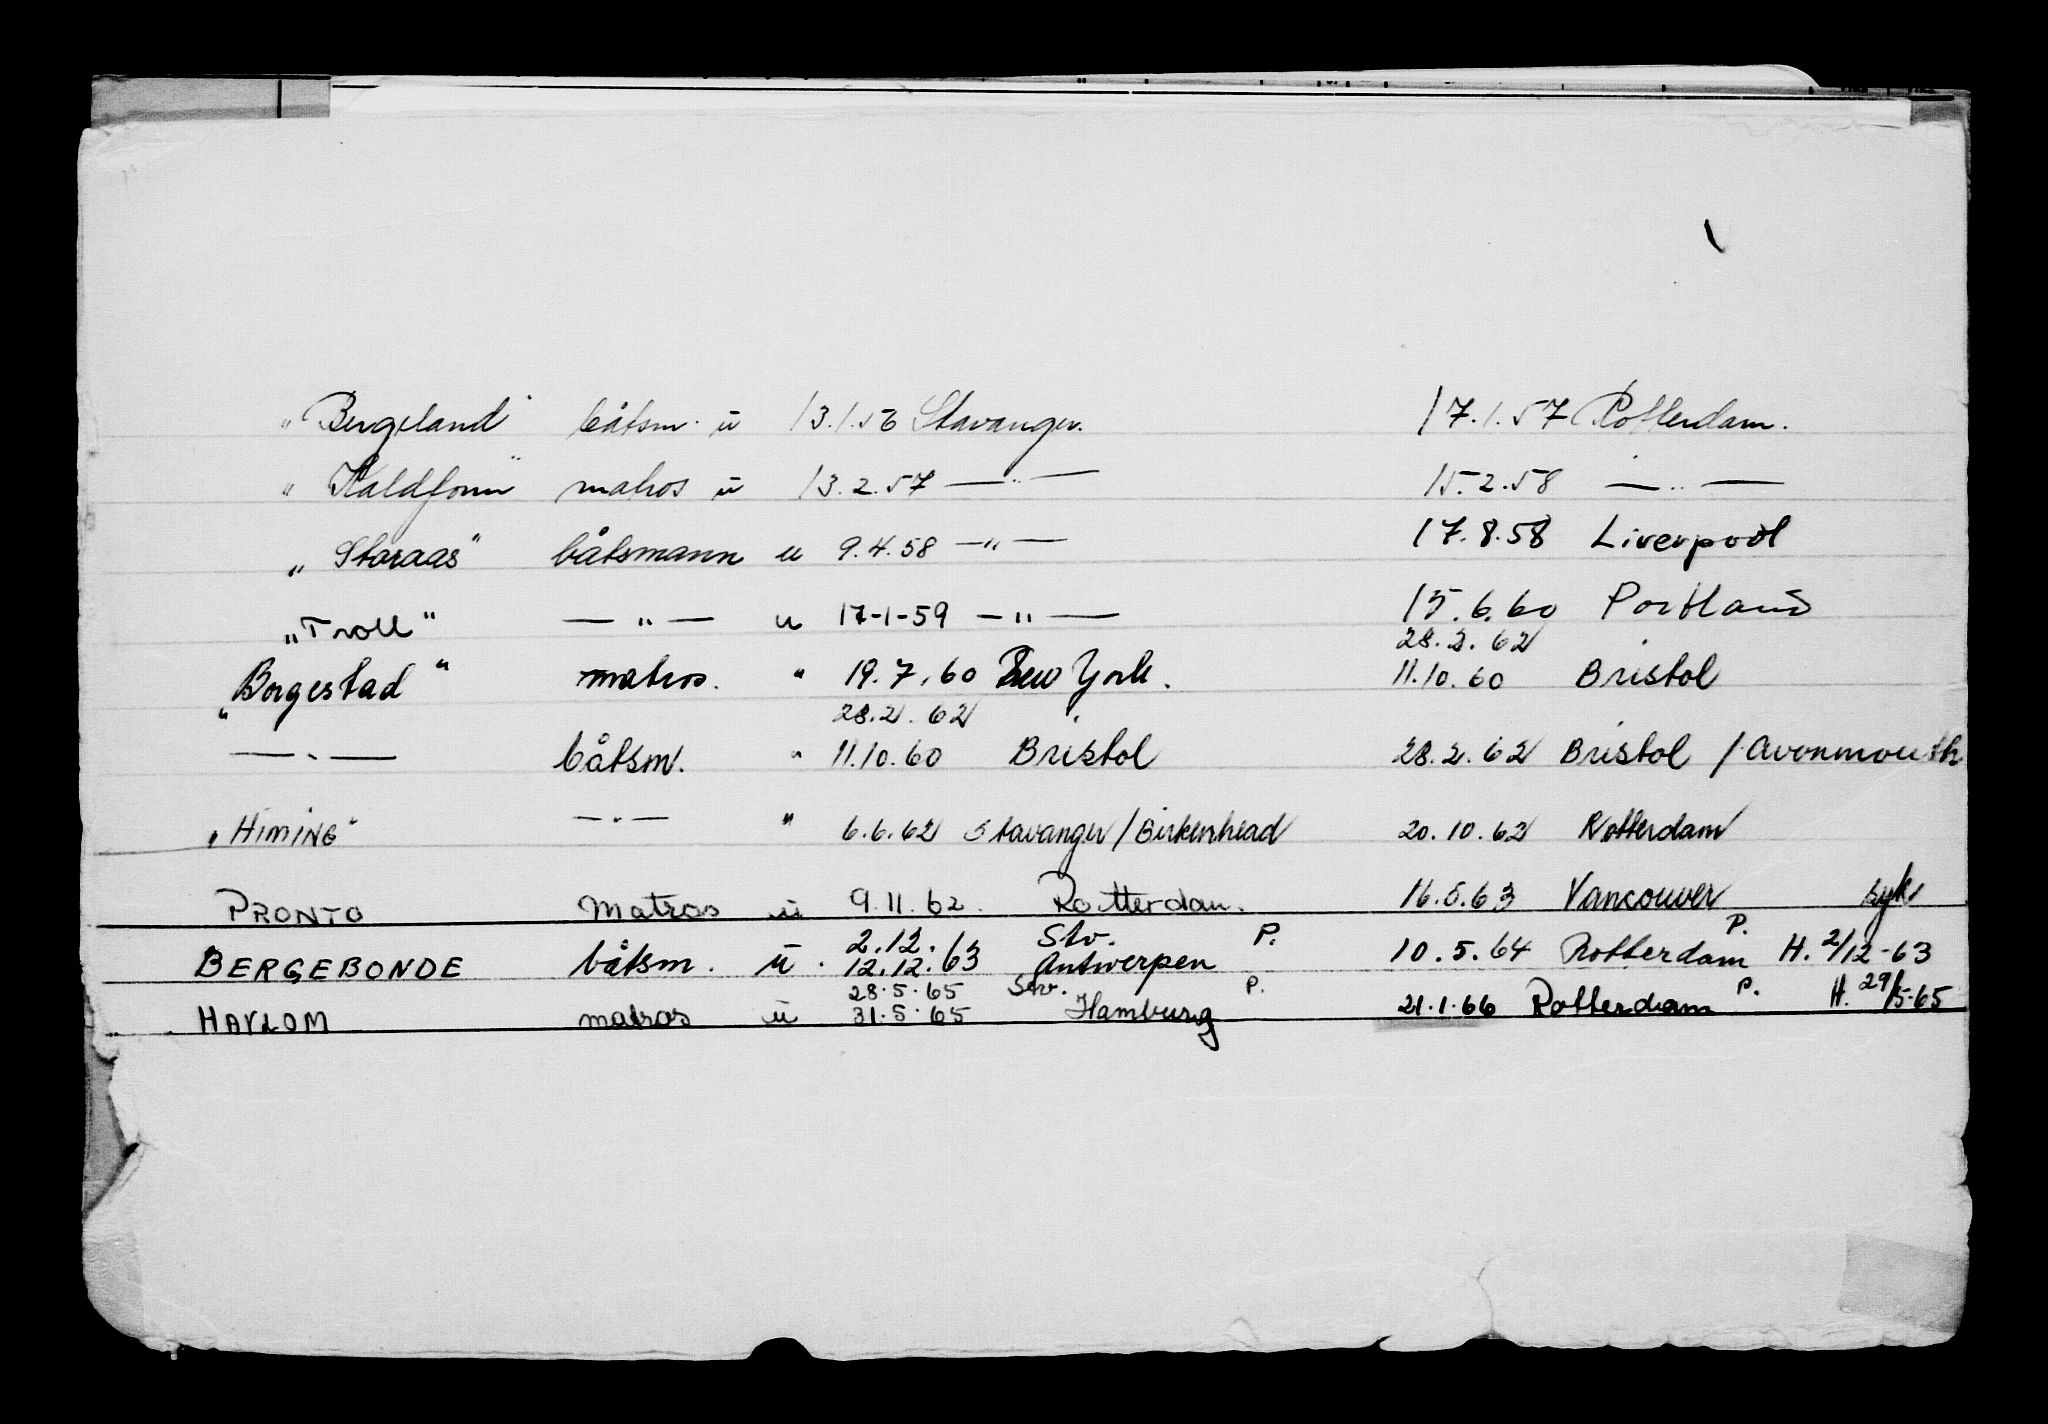 "Bergeland" båtsm. u 13.1.56 Stavanger. 17.1.57 Rotterdam.
"Kaldfonn" matros u 13.2.57 — " — 15.2.58 — " —
"Storaas" båtsmann u 9.4.58 — " — 17.8.58 Liverpool
"Troll" — " — u 17-1-59 — " — 15.6.60 Portland
28.2.62
"Borgestad" matros. " 19.7.60 New York. 11.10.60 Bristol
28.2.62
— " — båtsm. " 11.10.60 Bristol 28.2.62 Bristol / Avonmouth
"HIMING" — " — " 6.6.62 Stavanger / Birkenhead 20.10.62 Rotterdam
PRONTO Matros u 9.11.62. Rotterdam. 16.5.63 Vancouver syk
2.12.63 Stv. P. P.
BERGEBONDE båtsm. u. 12.12.63 Antwerpen 10.5.64 Rotterdam H. 2/12-63
28.5.65 Stv. P. P.
HAVLOM matros u 31.5.65 Hamburg 21.1.66 Rotterdam H. 29/5-65